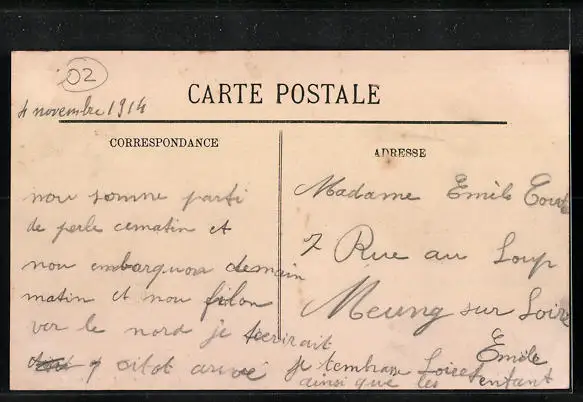 02
4 novembre 1914
CARTE POSTALE
CORRESPONDANCE
ADRESSE
nou somme parti
de perle cematin et
nou embarquon demain
matin et nou filon
ver le nord je tecrirait
sitot arivé je tembrasse
ainsi que les enfant
Emile
Madame Emile
7 Rue au Loup
Meung sur Loire
Loiret